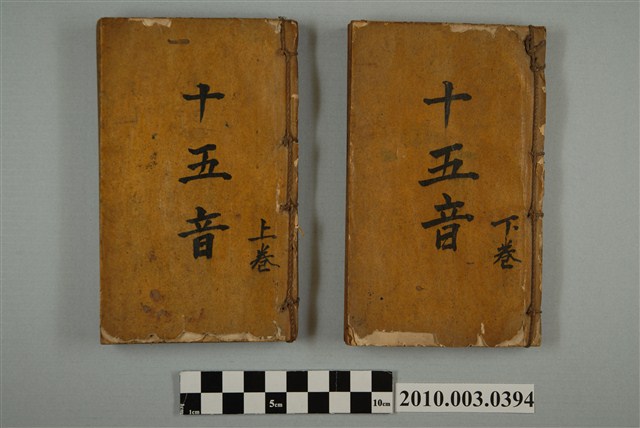 十五音
上卷
十五音
下卷
1cm 5cm 10cm
2010.003.0394